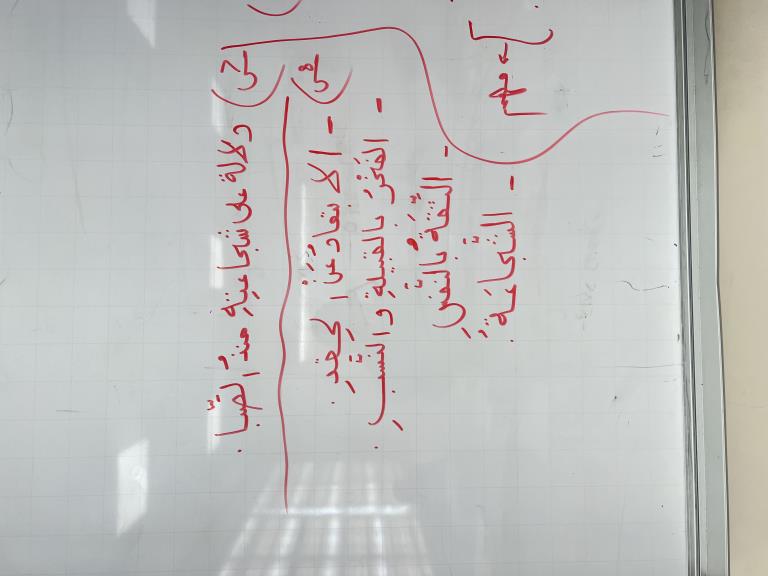 دلالة على شجاعتهِ منذُ الصِّبا.
- الابتعادُ عن الحقدِ.
- الفخرُ بالقبيلةِ والنَّسبِ.
- الثِّقةُ بالنَّفسِ.
- الشَّجاعَةُ.
مهم